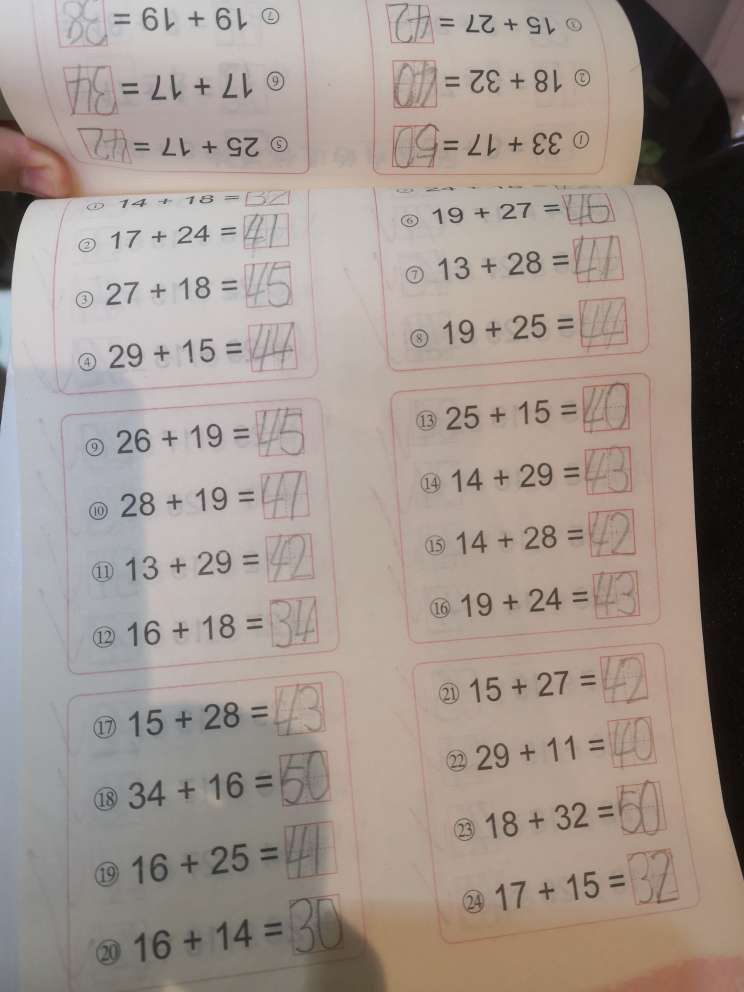 ① 33 + 17 = 50
② 18 + 32 =
③ 15 + 27 = 42
⑤ 25 + 17 = 42
⑥ 17 + 17 = 34
⑦ 19 + 19 = 38
① 14 + 18 = 32
② 17 + 24 = 41
③ 27 + 18 = 45
④ 29 + 15 = 44
⑥ 19 + 27 = 46
⑦ 13 + 28 = 41
⑧ 19 + 25 = 44
⑨ 26 + 19 = 45
⑩ 28 + 19 = 47
⑪ 13 + 29 = 42
⑫ 16 + 18 = 34
⑬ 25 + 15 = 40
⑭ 14 + 29 = 43
⑮ 14 + 28 = 42
⑯ 19 + 24 = 43
⑰ 15 + 28 = 43
⑱ 34 + 16 = 50
⑲ 16 + 25 = 41
⑳ 16 + 14 = 30
㉑ 15 + 27 = 42
㉒ 29 + 11 = 40
㉓ 18 + 32 = 50
㉔ 17 + 15 = 32